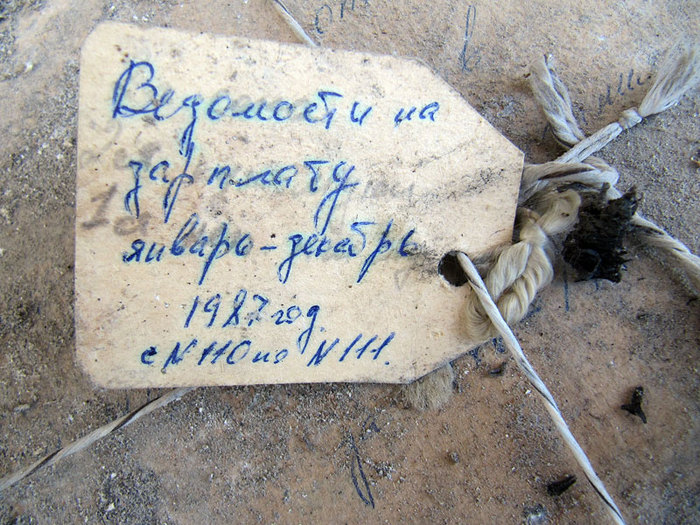 Ведомости на
зарплату
январь-декабрь
1987 год.
с N 110 по N 111.